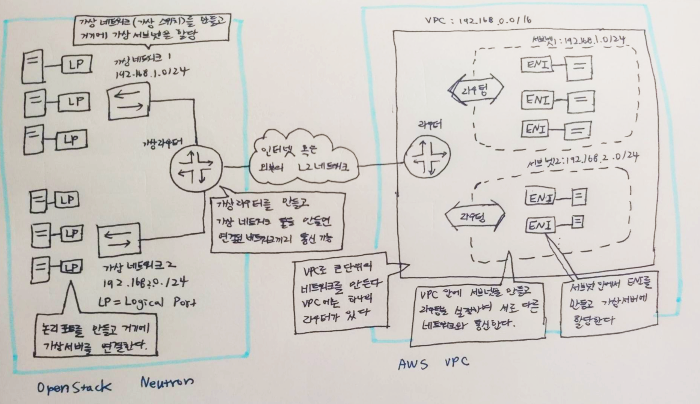 가상 네트워크(가상 스위치)를 만들고
거기에 가상 서브넷을 할당
LP
LP
LP
가상 네트워크 1
192.168.1.0/24
가상라우터
LP
LP
LP
가상 네트워크 2
192.168.2.0/24
LP = Logical Port
논리 포트를 만들고 거기에
가상서버를 연결한다.
가상 라우터를 만들고
가상 네트워크 들을 만들면
연결된 네트워크끼리 통신 가능
인터넷 혹은
외부의 L2 네트워크
OpenStack Neutron
VPC : 192.168.0.0/16
라우터
서브넷1 : 192.168.1.0/24
라우팅
ENI
ENI
ENI
서브넷2 : 192.168.2.0/24
라우팅
ENI
ENI
VPC로 큰 단위의
네트워크를 만든다
VPC 에는 하나의
라우터가 있다
VPC 안에 서브넷을 만들고
라우팅을 설정하여 서로 다른
네트워크와 통신한다.
서브넷 안에서 ENI를
만들고 가상서버에
할당한다
AWS VPC